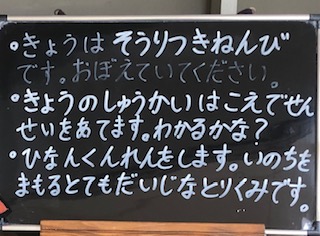 ・きょうは そうりつきねんび
です。おぼえていてください。
・きょうのしゅうかいはこえでせん
せいをあてます。わかるかな?
・ひなんくんれんをします。いのちを
まもるとてもだいじなとりくみです。